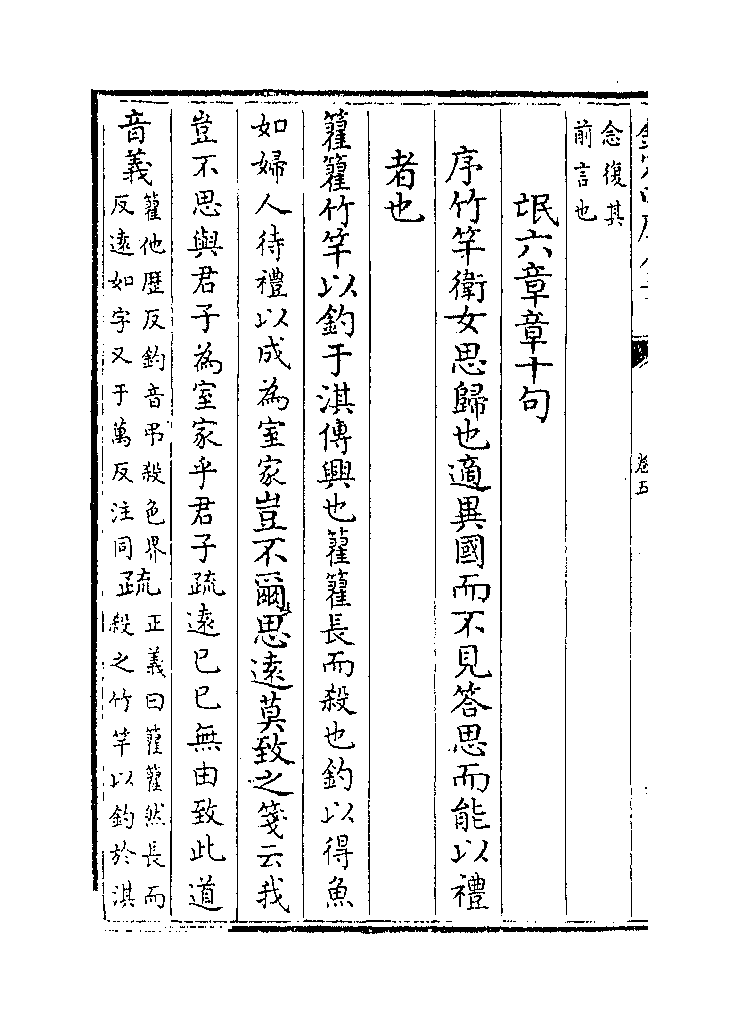 念復其
前言也
氓六章章十句
序竹竿衛女思歸也適異國而不見答思而能以禮
者也
籊籊竹竿以釣于淇傳興也籊籊長而殺也釣以得魚
如婦人待禮以成為室家豈不爾思遠莫致之箋云我
豈不思與君子為室家乎君子疏遠已已無由致此道
音義籊他歴反釣音弔殺色界
反遠如字又于萬反注同疏正義曰籊籊然長而
殺之竹竿以釣於淇
卷五